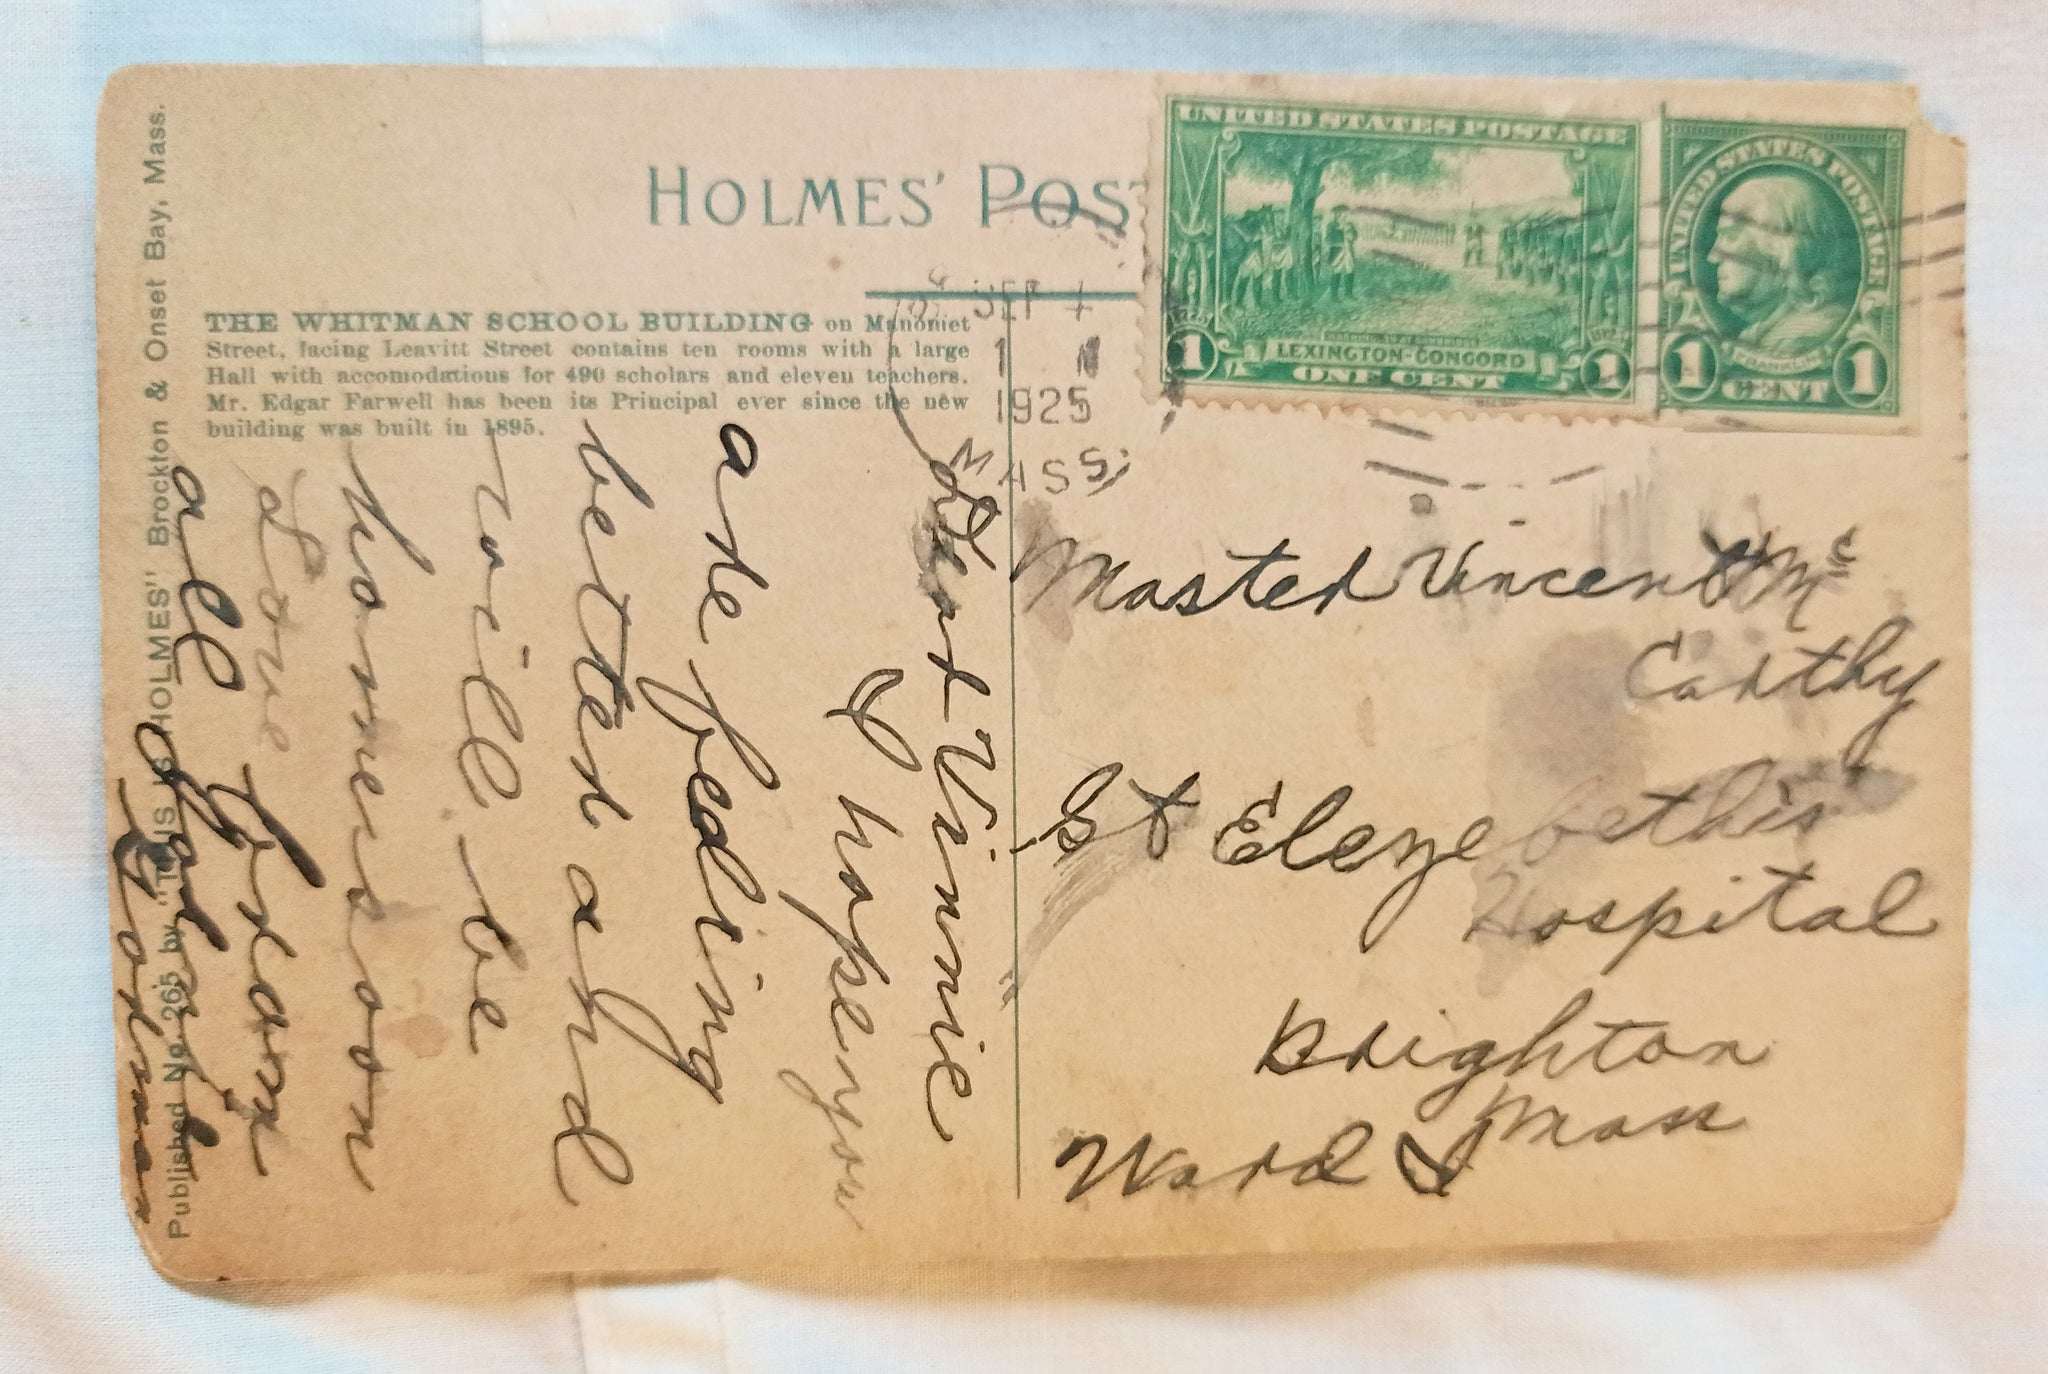 HOLMES' POS
UNITED STATES POSTAGE
1
LEXINGTON-CONCORD
1
ONE CENT
UNITED STATES POSTAGE
1
FRANKLIN
1
CENT
SEP
1
1925
MASS.
THE WHITMAN SCHOOL BUILDING on Manomet
Street, facing Leavitt Street contains ten rooms with a large
Hall with accomodations for 490 scholars and eleven teachers.
Mr. Edgar Farwell has been its Principal ever since the new
building was built in 1895.
Published No. 265 by "THIS IS HOLMES" Brockton & Onset Bay, Mass.
Dear Vinnie
I hope you
are feeling
better and
will be
home soon
Love from
all
Gorman
Master Vincent Mc
Carthy
St Elezebeth's
Hospital
Brighton
Mass
Ward I